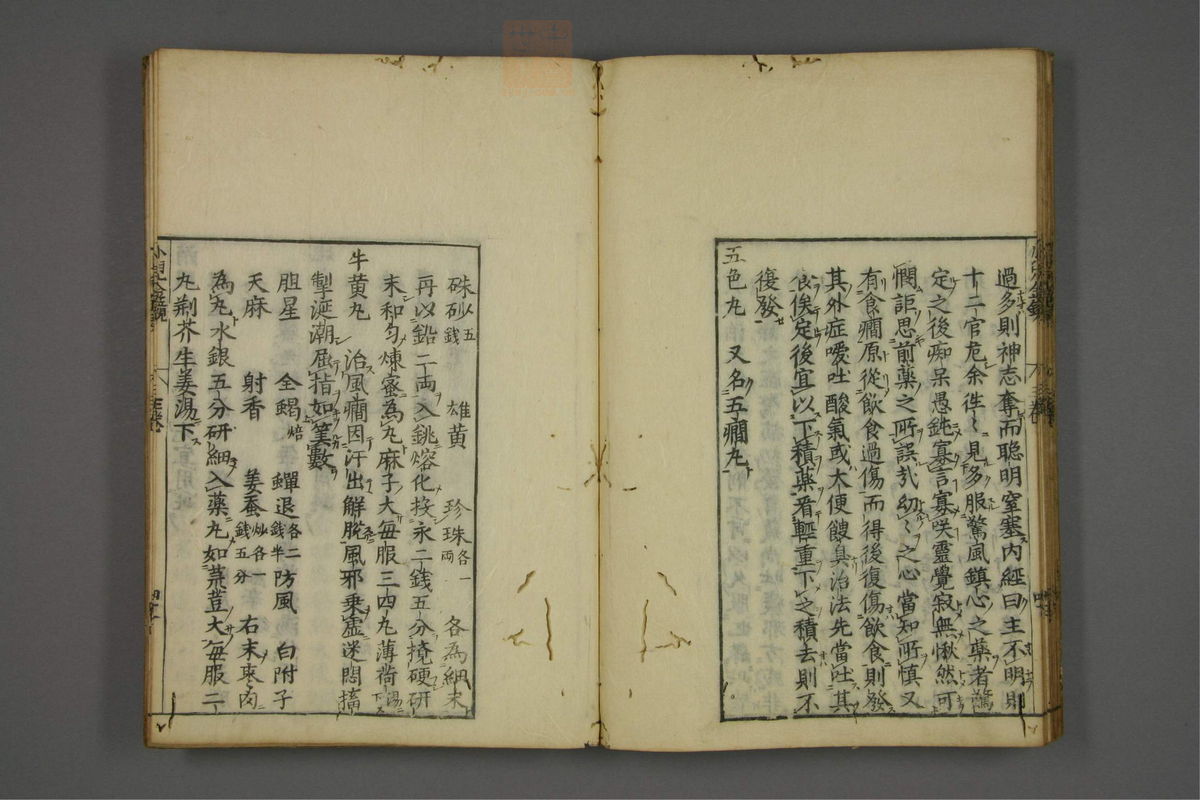 過多則神志奪而聰明窒塞内經曰主不明則
十二官危余徃〻見多服驚風鎮心之藥者驚
定之後痴呆愚鈍寡言寡咲靈覺寂無愀然可
憫詎思前藥之所誤㢤幼〻之心當知所慎又
有食癇原從飲食過傷而得後復傷飲食則發
其外症噯吐酸氣或大便餿臭治法先當吐其
食俟定後宜以下積藥看輕重下之積去則不
復發
五色丸 又名五癇丸
硃砂以五錢 雄黄 珍珠各一両 各為細末
再以鉛二両入銚熔化投永二錢五分撓硬研
末和匀煉蜜為丸麻子大每服三四九薄荷湯下
牛黄丸 治風癇因汗出解脫風邪乗虚迷悶搐
掣涎潮屈指如筭數
胆星 全蝎焙 蟬退各二錢半 防風 白附子
天麻 射香 姜蚕炒各一錢五分 右末棗肉
為丸水銀五分研細入藥丸如荒荳大每服二
九荆芥生姜湯下